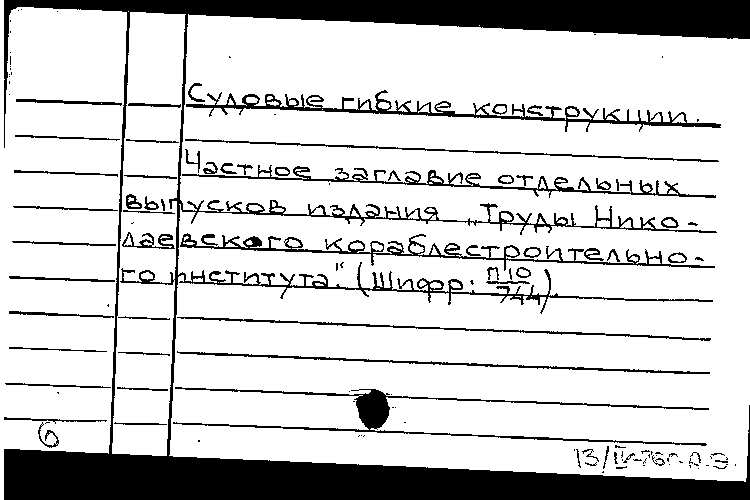 Судовые гибкие конструкции.
Частное заглавие отдельных
выпусков издания „Труды Нико-
лаевского кораблестроительно-
го института". (Шифр: П10/744).
6
13/IV-76г. О.Э.